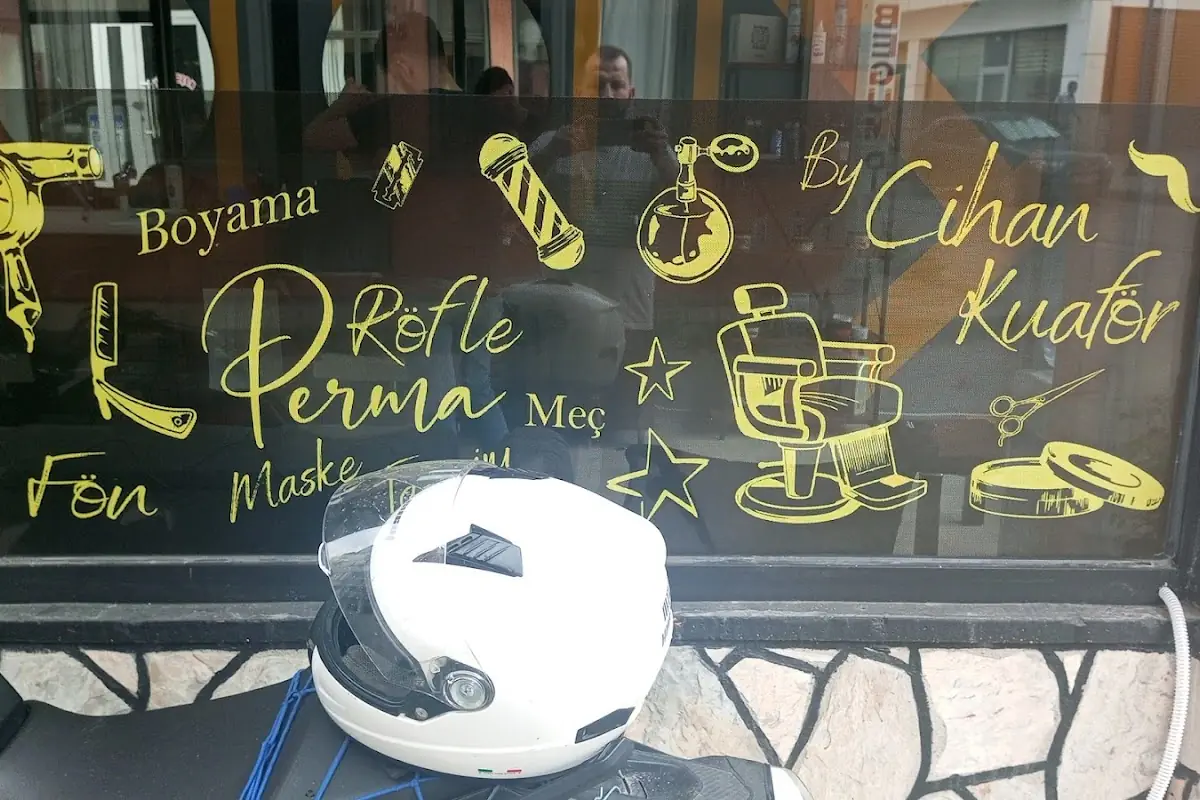 Boyama
By Cihan
Kuaför
Röfle
Perma
Meç
Fön
Maske